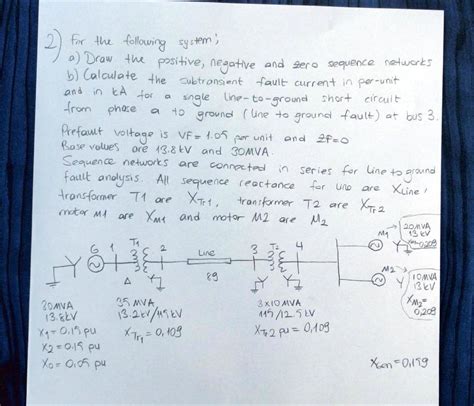 2) For the following system;
a) Draw the positive, negative and zero sequence networks
b) Calculate the subtransient fault current in per-unit
and in kA for a single line-to-ground short circuit
from phase a to ground (line to ground fault) at bus 3.
Prefault voltage is VF = 1.05 per unit and Zf=0
Base values are 13.8kV and 30MVA.
Sequence networks are connected in series for line to ground
fault analysis. All sequence reactance for line are XLine,
transformer T1 are XTr1, transformer T2 are XTr2
motor M1 are XM1 and motor M2 are M2
20MVA
13 kV
=0,209
M1
G 1 T1 2 Line 3 T2 4
89
Δ
M2
10MVA
13kV
XM2=
0,209
30MVA
13.8kV
X1=0,15 pu
X2=0,15 pu
X0=0,05 pu
35 MVA
13.2kV/115 kV
XTr1=0,109
3x10 MVA
115/12.5 kV
XTr2 pu=0,109
Xgen=0,159